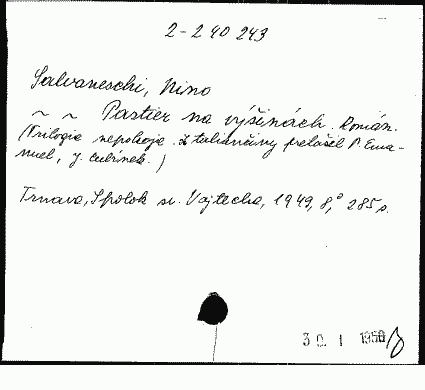 2-240 243
Salvaneschi, Nino
~ ~ Pastier na výšinách. Román.
(Trilogia nepokoja. Z taliančiny preložil P. Ema-
nuel, J. Cubínek.)
Trnava, Spolok sv. Vojtecha, 1949, 8,° 285 s.
30. 1 1950